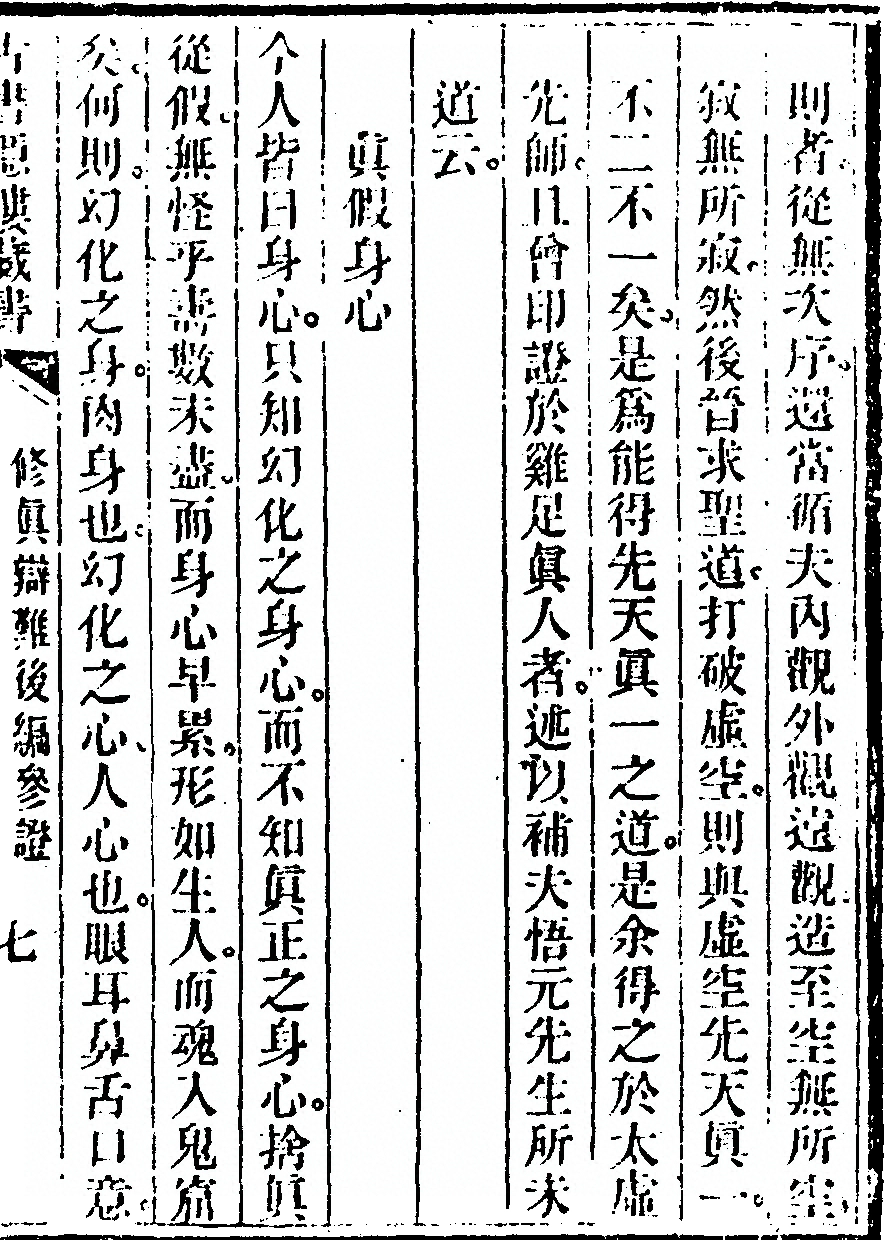 則者。從無次序。還當循夫內觀外觀遠觀造至空無所空。
寂無所寂。然後晉求聖道。打破虛空。則與虛空先天眞一。
不二不一矣。是爲能得先天眞一之道。是余得之於太虛
先師。且曾印證於雞足眞人者。述以補夫悟元先生所未
道云。
眞假身心
今人皆曰身心。只知幻化之身心。而不知眞正之身心。捨眞
從假。無怪乎壽數未盡。而身心早累。形如生人。而魂入鬼窟
矣。何則。幻化之身。肉身也。幻化之心、人心也。眼耳鼻舌口意。
古書隱樓藏書
修眞辯難後編參證
七